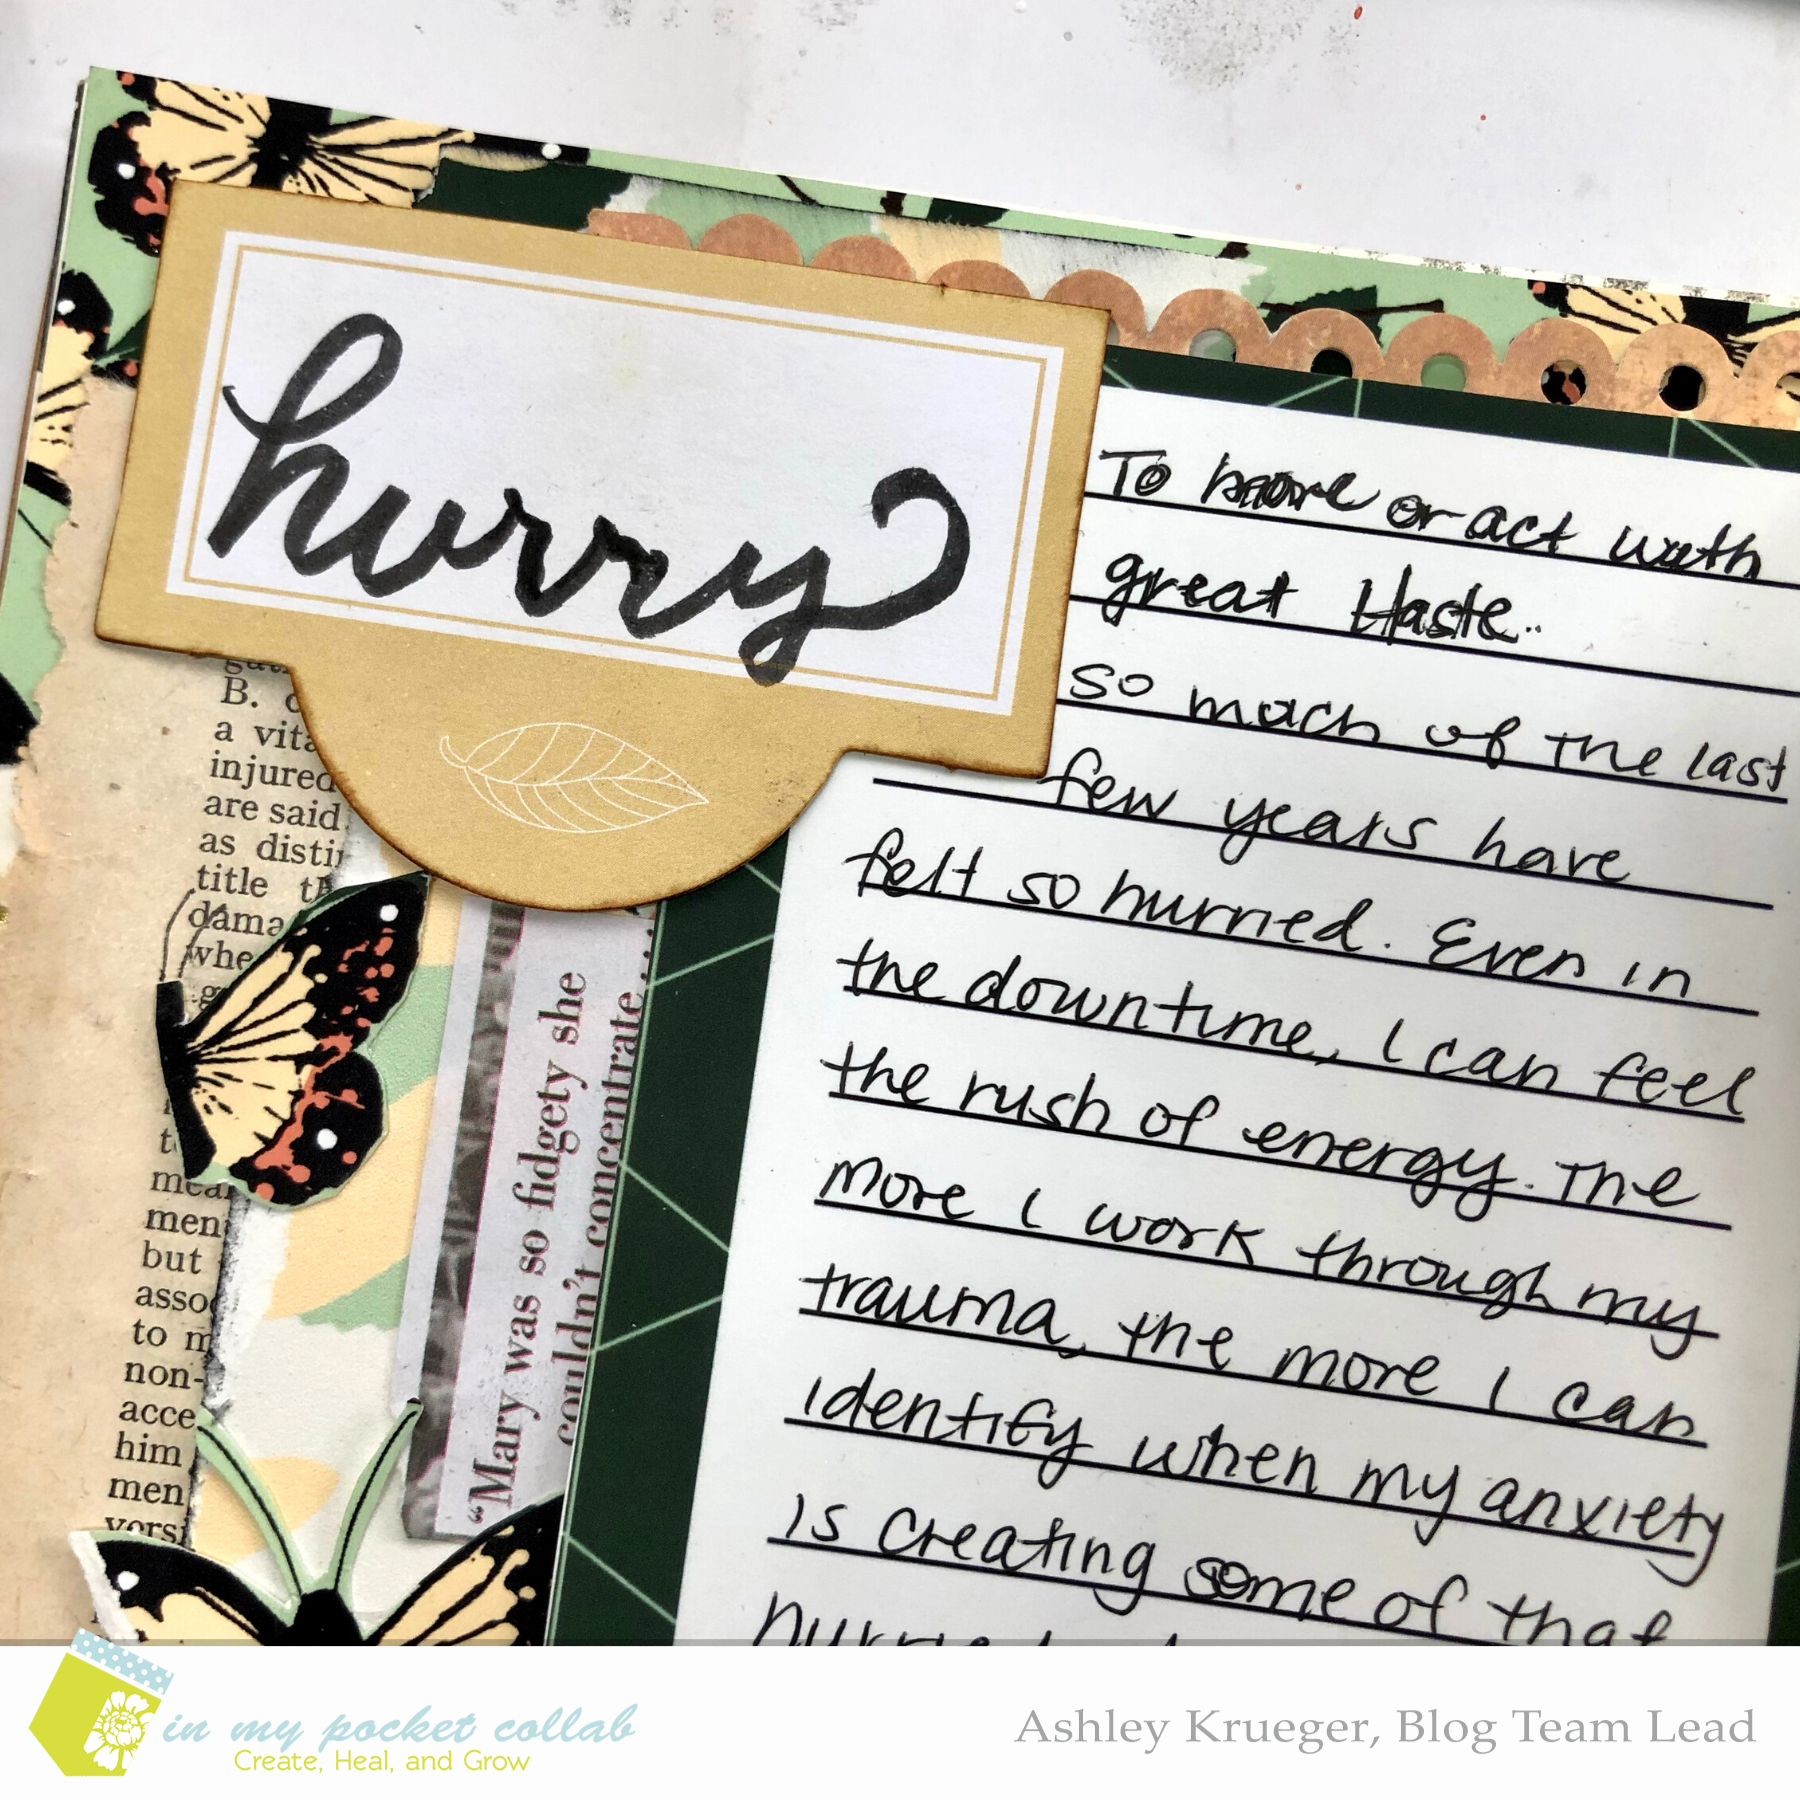 hurry
To move or act with
great Haste..
so much of the last
few years have
felt so hurried. Even in
the downtime, I can feel
the rush of energy. The
more I work through my
trauma, the more I can
identify when my anxiety
is creating some of that
B.
a
injured
are said
as
title
to
but
to
non-
him
men
"Mary was so fidgety she
couldn't concentrate...
in my pocket collab
Create, Heal, and Grow
Ashley Krueger, Blog Team Lead